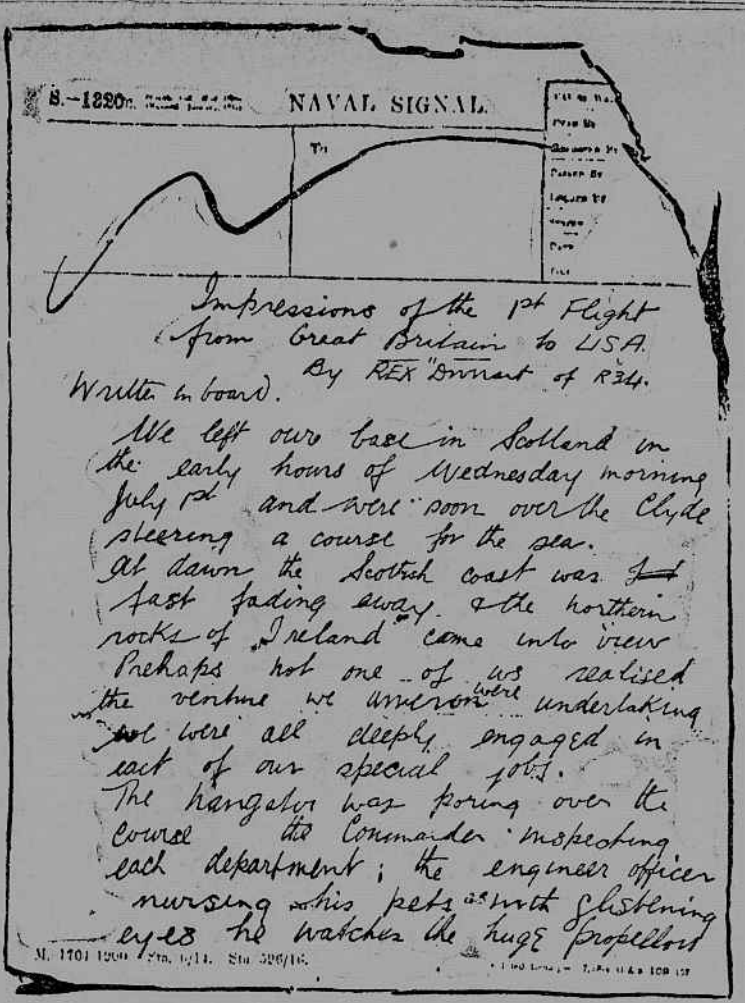 S.—1320c.
NAVAL SIGNAL.
To
Impressions of the 1st Flight
from Great Britain to USA.
By REX Durrant of R34.
Written on board.
We left our base in Scotland in
the early hours of Wednesday morning
July 1st and were soon over the Clyde
steering a course for the sea.
At dawn the Scottish coast was
fast fading away & the northern
rocks of Ireland came into view
Prehaps not one of us realised
the venture we were undertaking
we were all deeply engaged in
each of our special jobs.
The navigator was poring over the
course the Commander inspecting
each department; the engineer officer
nursing his pets as with glistening
eyes he watches the huge propellors